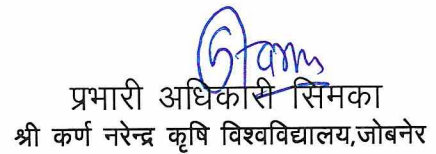 प्रभारी अधिकारी सिमका
श्री कर्ण नरेन्द्र कृषि विश्वविद्यालय,जोबनेर